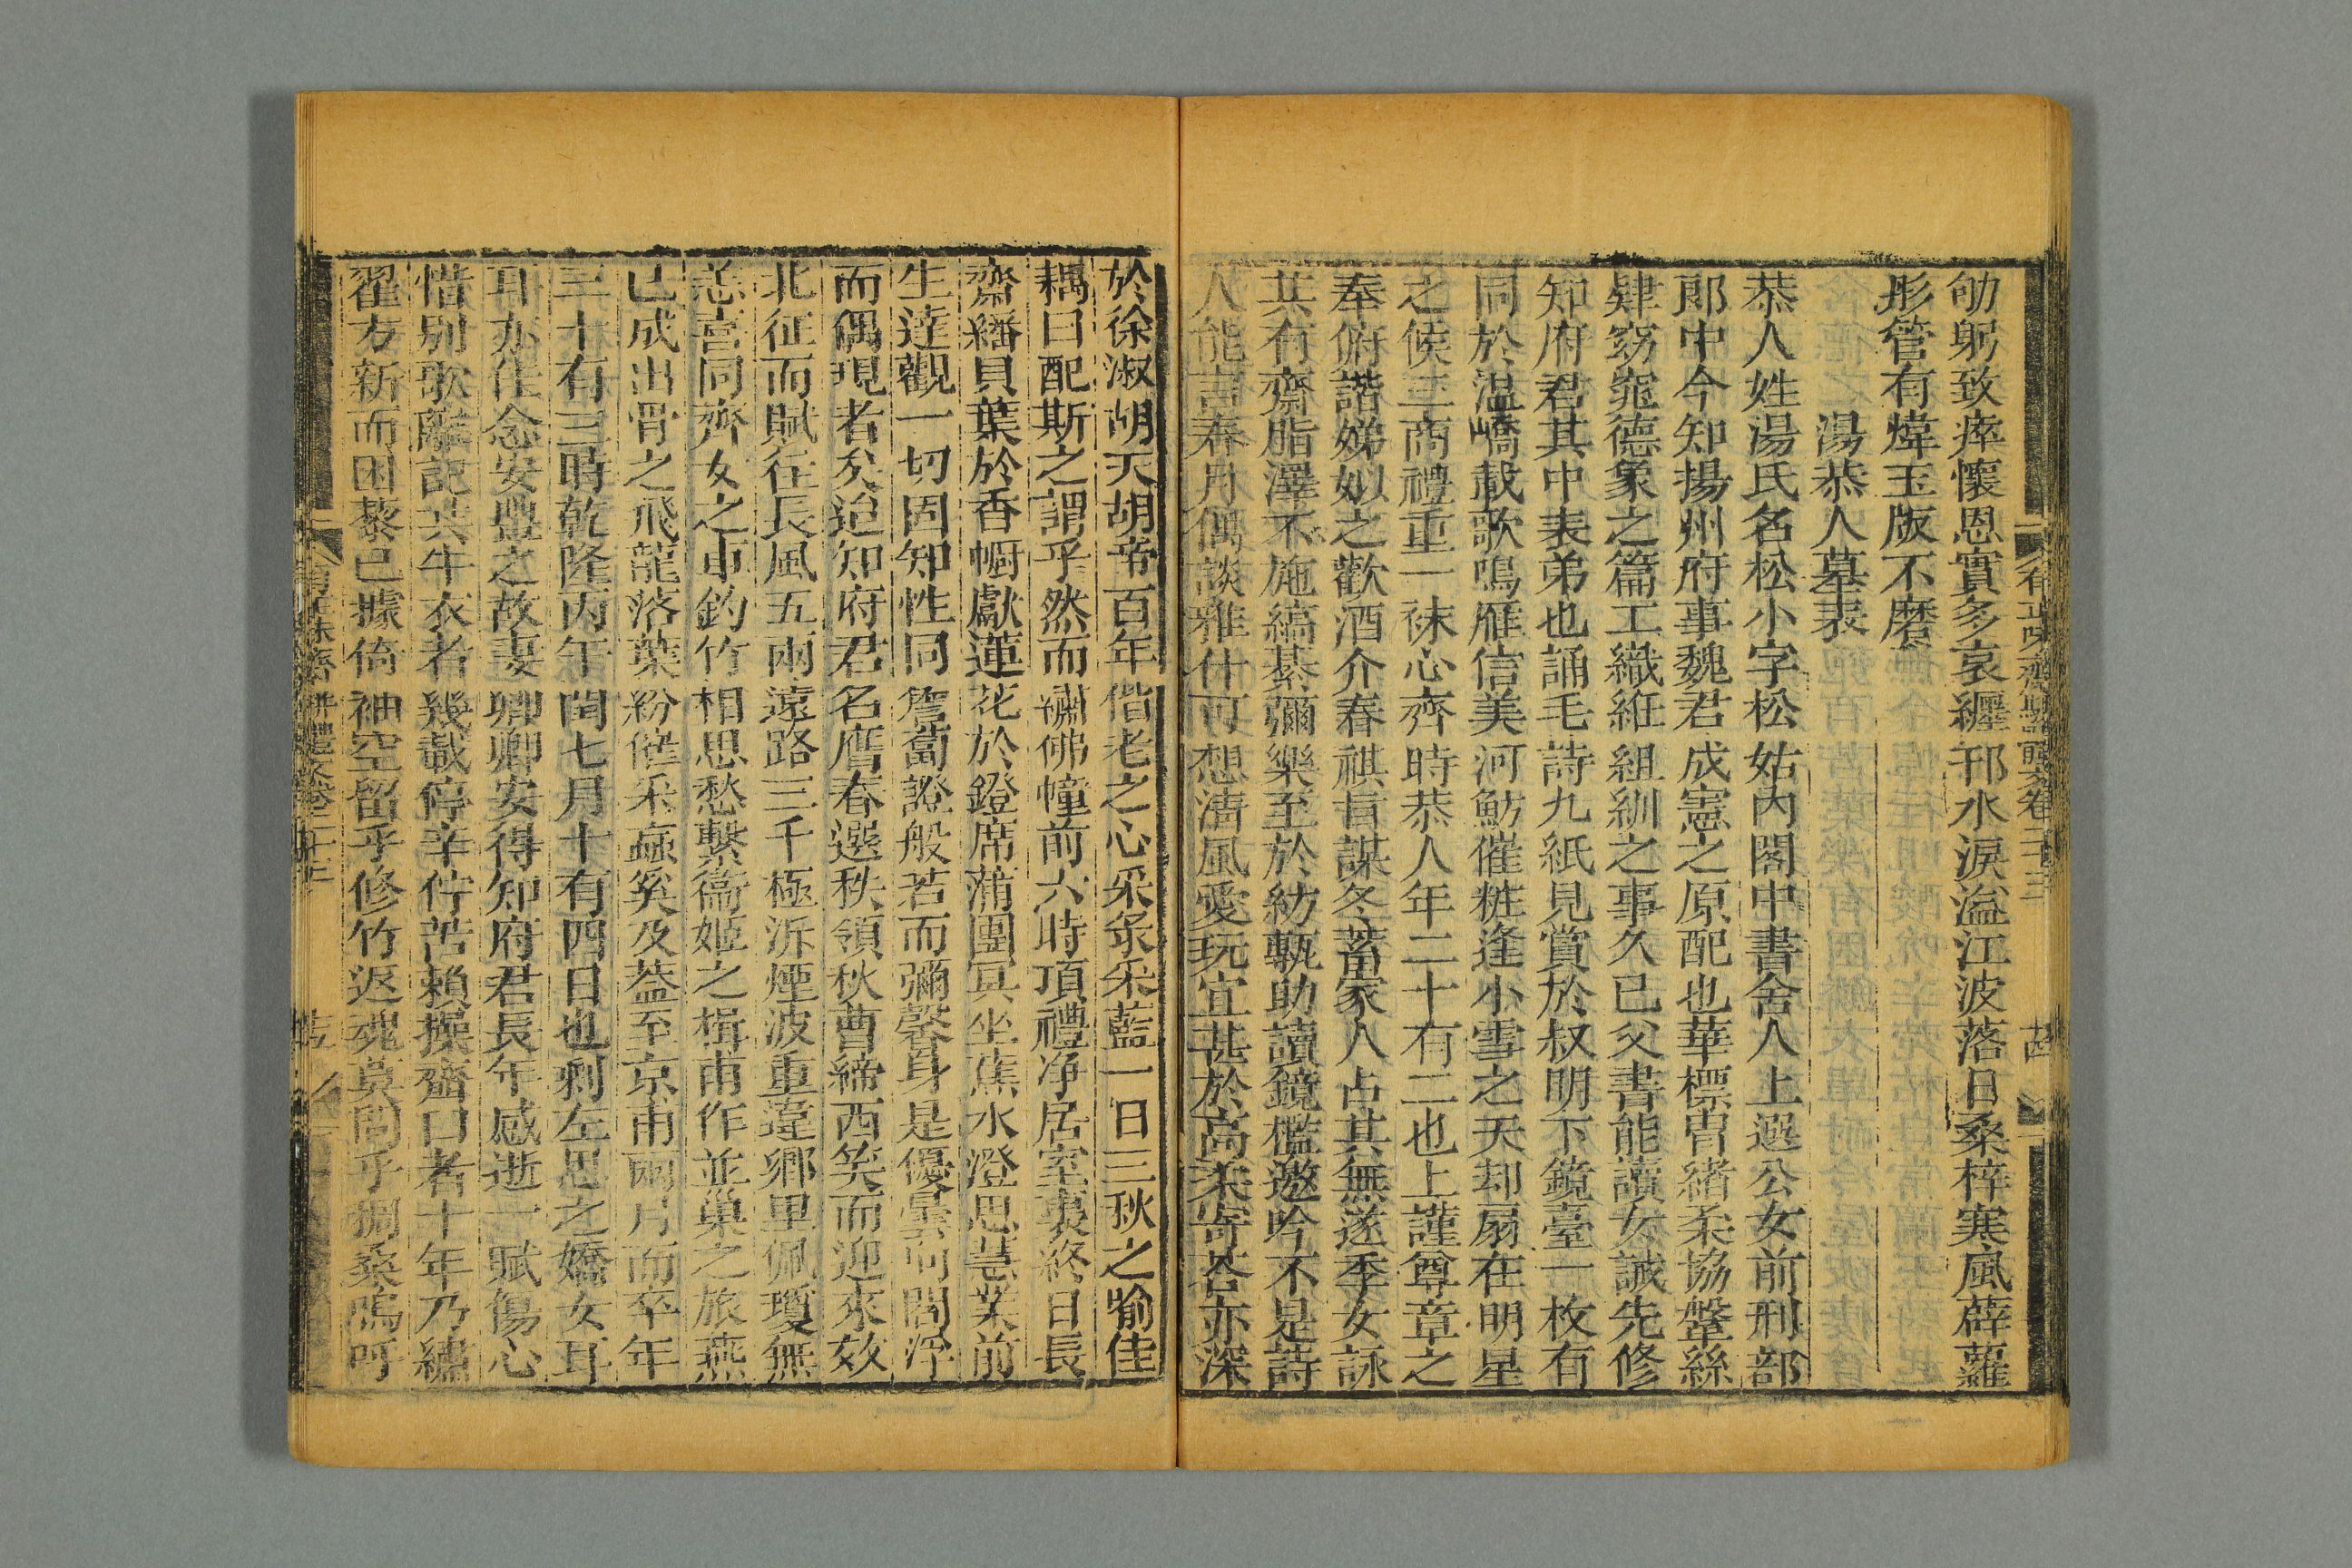 有正味齋駢體文卷二十三
古
劬躬致瘁懷恩實多哀纏邗水淚溢江波落日桑梓寒風薜蘿
彤管有煒玉版不磨
湯恭人墓表
恭人姓湯氏名松小字松姑內閣中書舍人上選公女前刑部
郎中今知揚州府事魏君成憲之原配也華標冑緒柔協鞶絲
肄窈窕德象之篇工織紝組紃之事久已父書能讀女誡先修
知府君其中表弟也誦毛詩九紙見賞於叔明下鏡臺一枚有
同於温嶠載歌鳴雁信美河魴催粧逢小雪之天却扇在明星
之候三商禮重一袜心齊時恭人年二十有二也上謹尊章之
奉俯諧娣姒之歡酒介春祺旨謀冬蓄家人占其無遂季女詠
其有齋脂澤不施縞綦彌樂至於紡甎助讀鏡檻邀吟不是詩
人能言春月偶談雅什可想清風愛玩宜甚於高柔寄荅亦深
於徐淑胡天胡帝百年偕老之心采菉采藍一日三秋之喻佳
耦曰配斯之謂乎然而繡佛幢前六時頂禮净居室裏終日長
齋繙貝葉於香㡡獻蓮花於鐙席蒲團冥坐蕉水澄思慧業前
生達觀一切固知性同簷蔔證般若而彌馨身是優曇向閻浮
而偶現者矣迨知府君名膺春選秩領秋曹締西笑而迎來效
北征而賦往長風五兩遠路三千極泝煙波重違鄉里佩瓊無
恙喜同齊女之車釣竹相思愁繫衞姬之楫甫作並巢之旅燕
已成出骨之飛龍落葉紛催采蘦奚及葢至京甫兩月而卒年
三十有三時乾隆丙午閏七月十有四日也剩左思之嬌女耳
耳亦佳念安豐之故妻卿卿安得知府君長年感逝一賦傷心
惜別歌離記共牛衣者幾載停辛佇苦賴操齏臼者十年乃繡
翟方新而困藜已據倚袖空留乎修竹返魂莫問乎搊桑嗚呼
有正味齋駢體文卷二十三